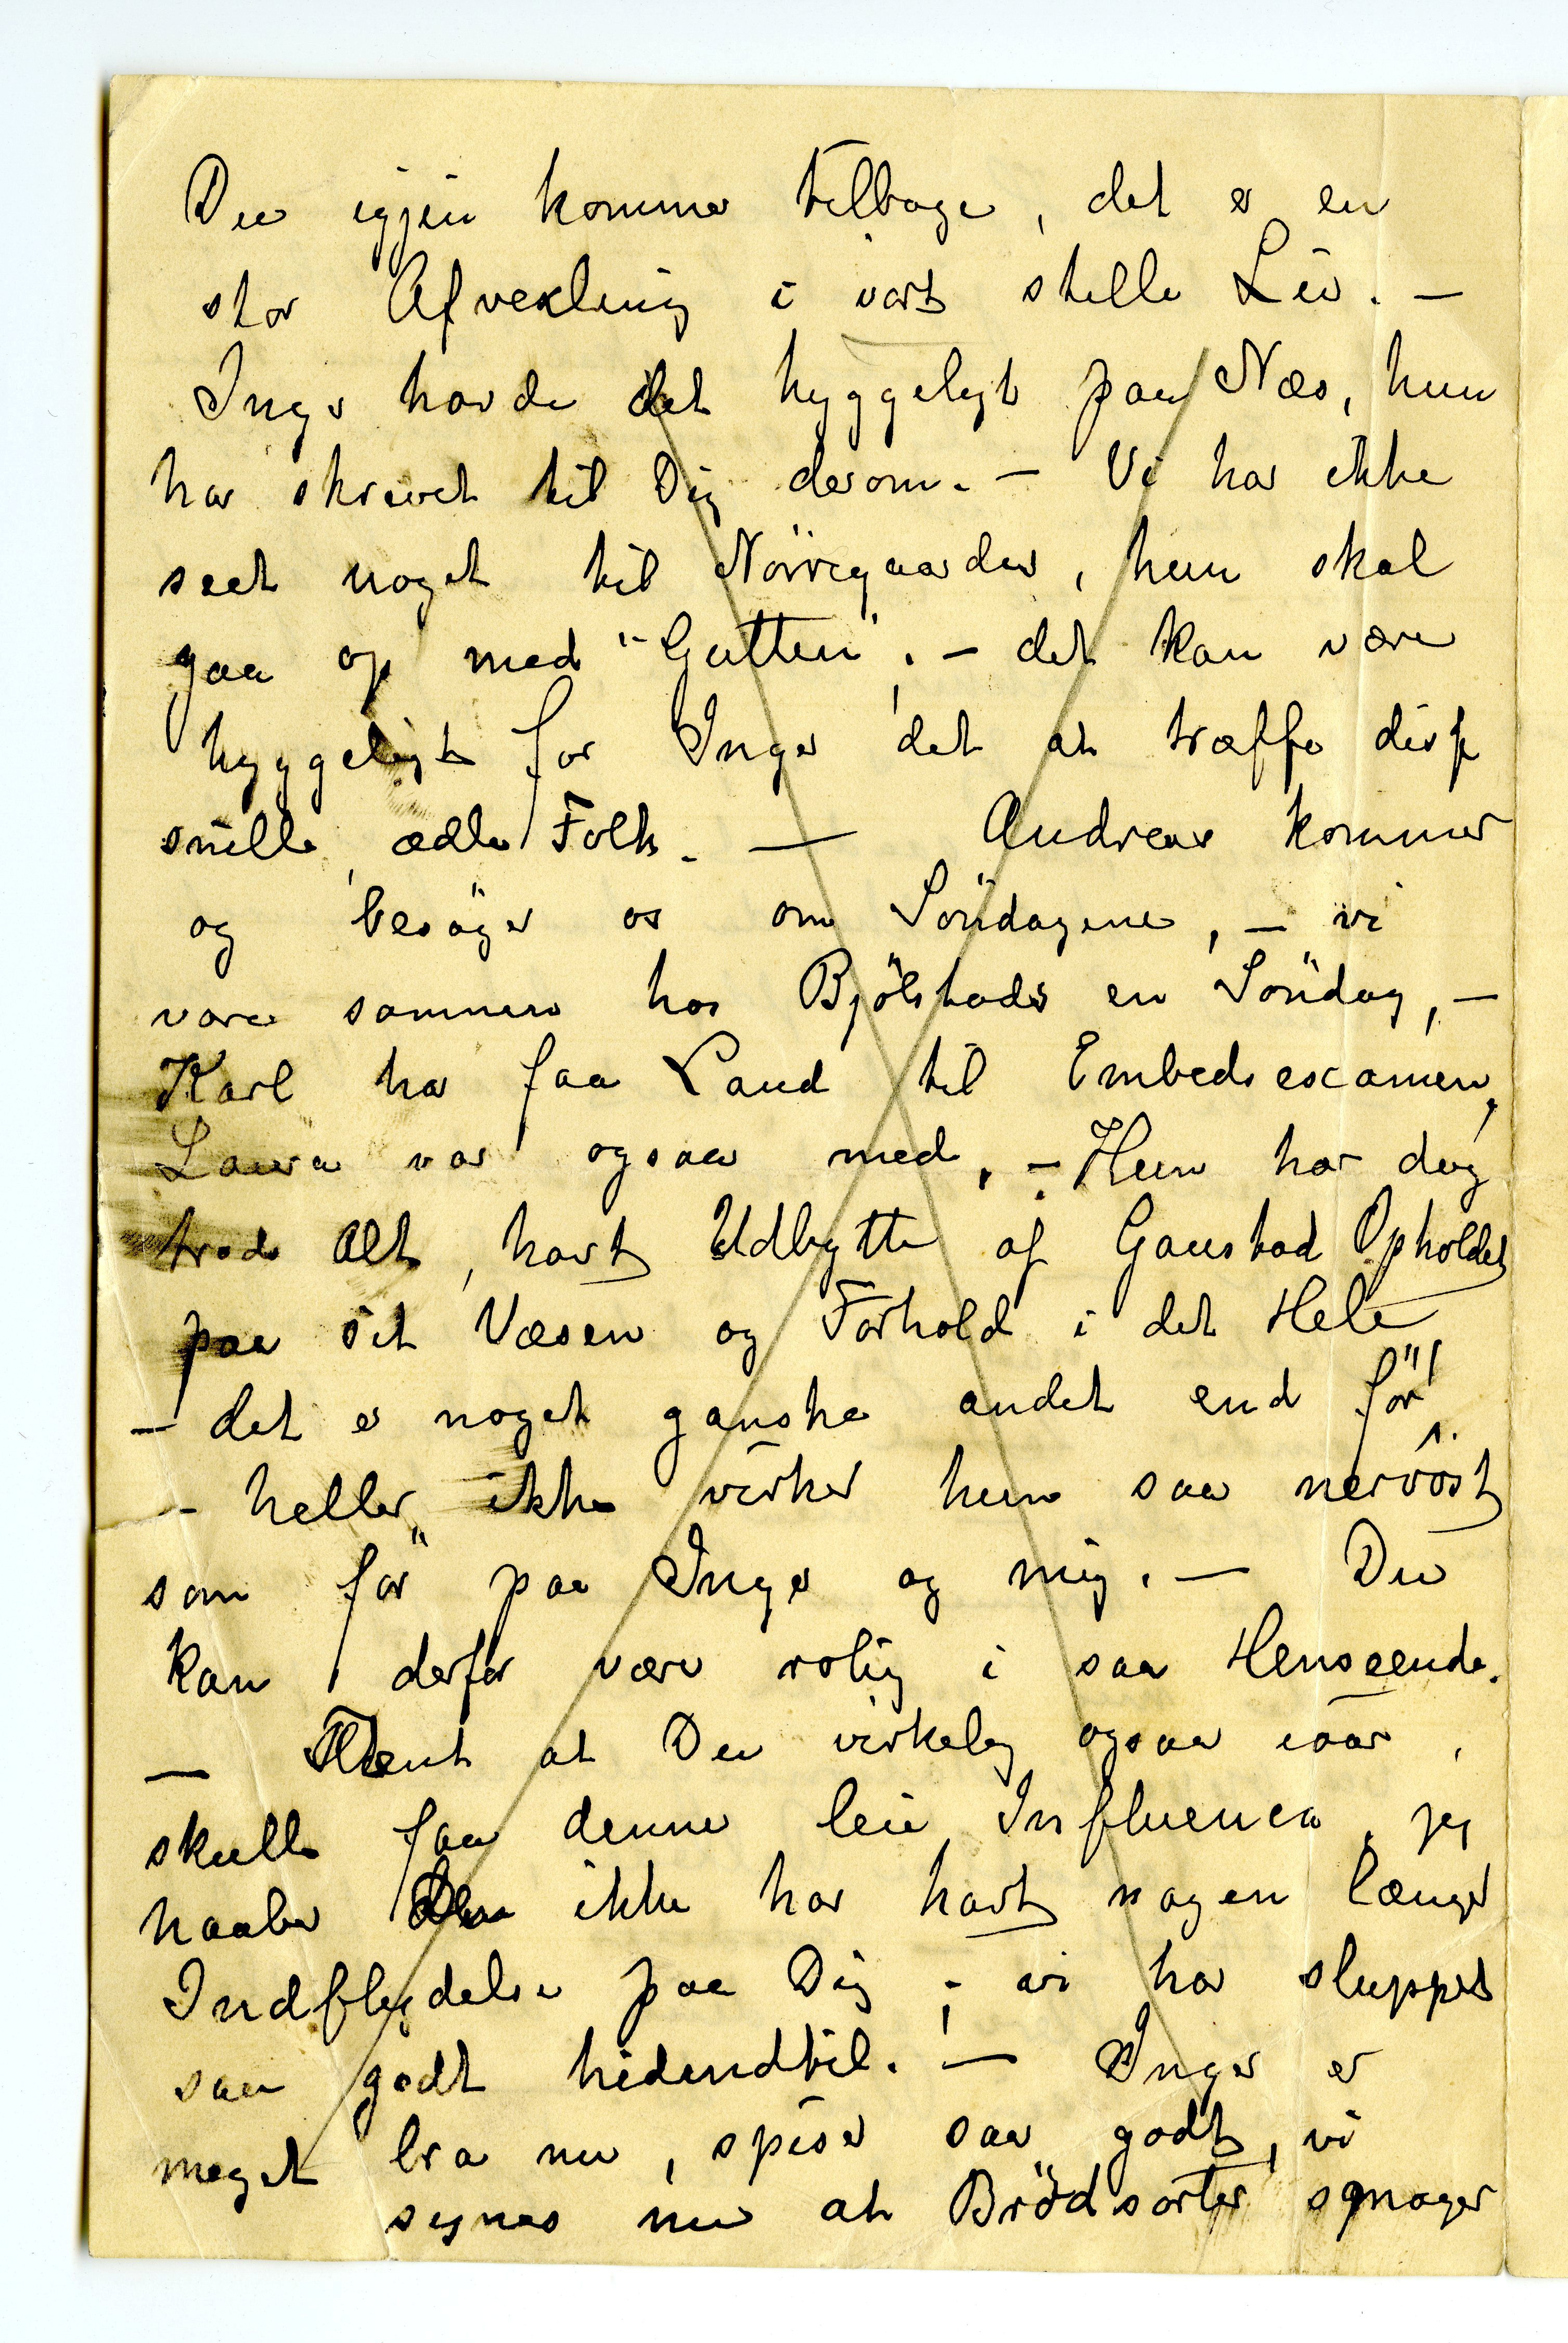 Du igjen kommer tilbage, det er en
stor Afvexling i vort stille Liv. —
Inger havde det hyggeligt paa Næs, hun
har skrevet til Dig derom. — Vi har ikke
seet noget til Nörregaarder, hun skal
gaa op med "Gutten". — det kan være
hyggeligt for Inger det at træffe disse
snille, ædle Folk. — Andreas kommer
og besöger os om Söndagene, — vi
vare sammen hos Bjölstads en Söndag, —
Karl har faa Laud til Embedsexamen,
Laura var ogsaa med. — Hun har dog
trods Alt, havt Udbytte af Gaustad Opholdet
paa sit Væsen og Forhold i det Hele
— det er noget ganske andet end för,
— heller ikke virker hun saa nervöst
som för paa Inger og mig. — Du
kan derfor være rolig i saa Henseende.
— at Du virkelig ogsaa iaar,
skulle faa denne leie Influenca, jeg
haaber den ikke har havt nogen længer
Indflydelse paa Dig; vi har sluppet
saa godt hidendtil. — Inger er
meget bra nu, spiser saa godt, vi
synes nu at Brödsorter smager